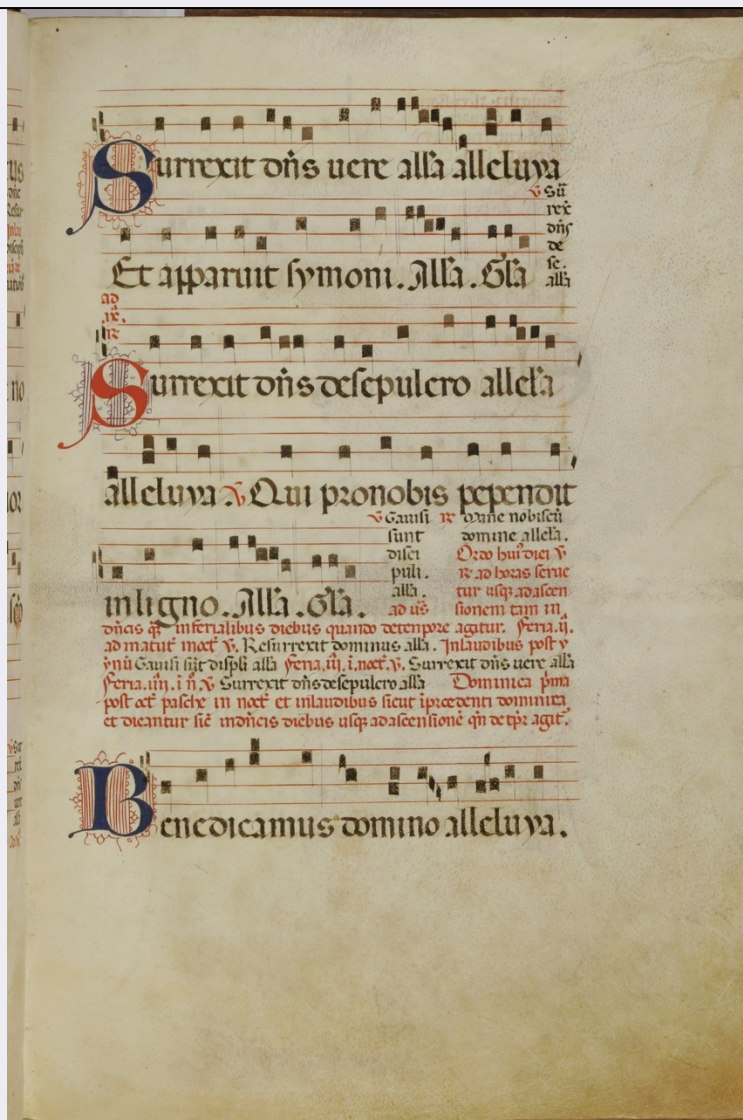 Surrexit dñs uere alła alleluya
℣ Sur
rex
dñs
de
se.
alła
Et apparuit symoni. Alła. Gła
ad
℟
Surrexit dñs desepulcro allela
alleluya. ℣ Qui pronobis pependit
inligno. Alła. Gła.
℣ Gauisi
sunt
disci
puli.
alła.
ad us̃
℟ Mane nobiscũ
domine allela.
Ordo huiꝰ diei ℣
℟ ad horas serue
tur usq; adascen
sionem tam in
dñcis q̃ inferialibus diebus quando detenpore agitur. Feria.ii.
ad matut̃ noct̃ ℣. Resurrexit dominus alła. Inlaudibus post y
ynũ Gauisi sũt displi alła Feria.iii. i. noct̃. ℣. Surrexit dñs uere alła
Feria.iiii. i ñ. ℣ Surrexit dñs desepulcro alła Dominica p̃ma
post oct̃ pasche in noct̃ et inlaudibus sicut ip̃cedenti dominica
et dicantur sic̃ indñcis diebus usq; adascensionẽ qñ de tp̃r agit̃.
Benedicamus domino alleluya.